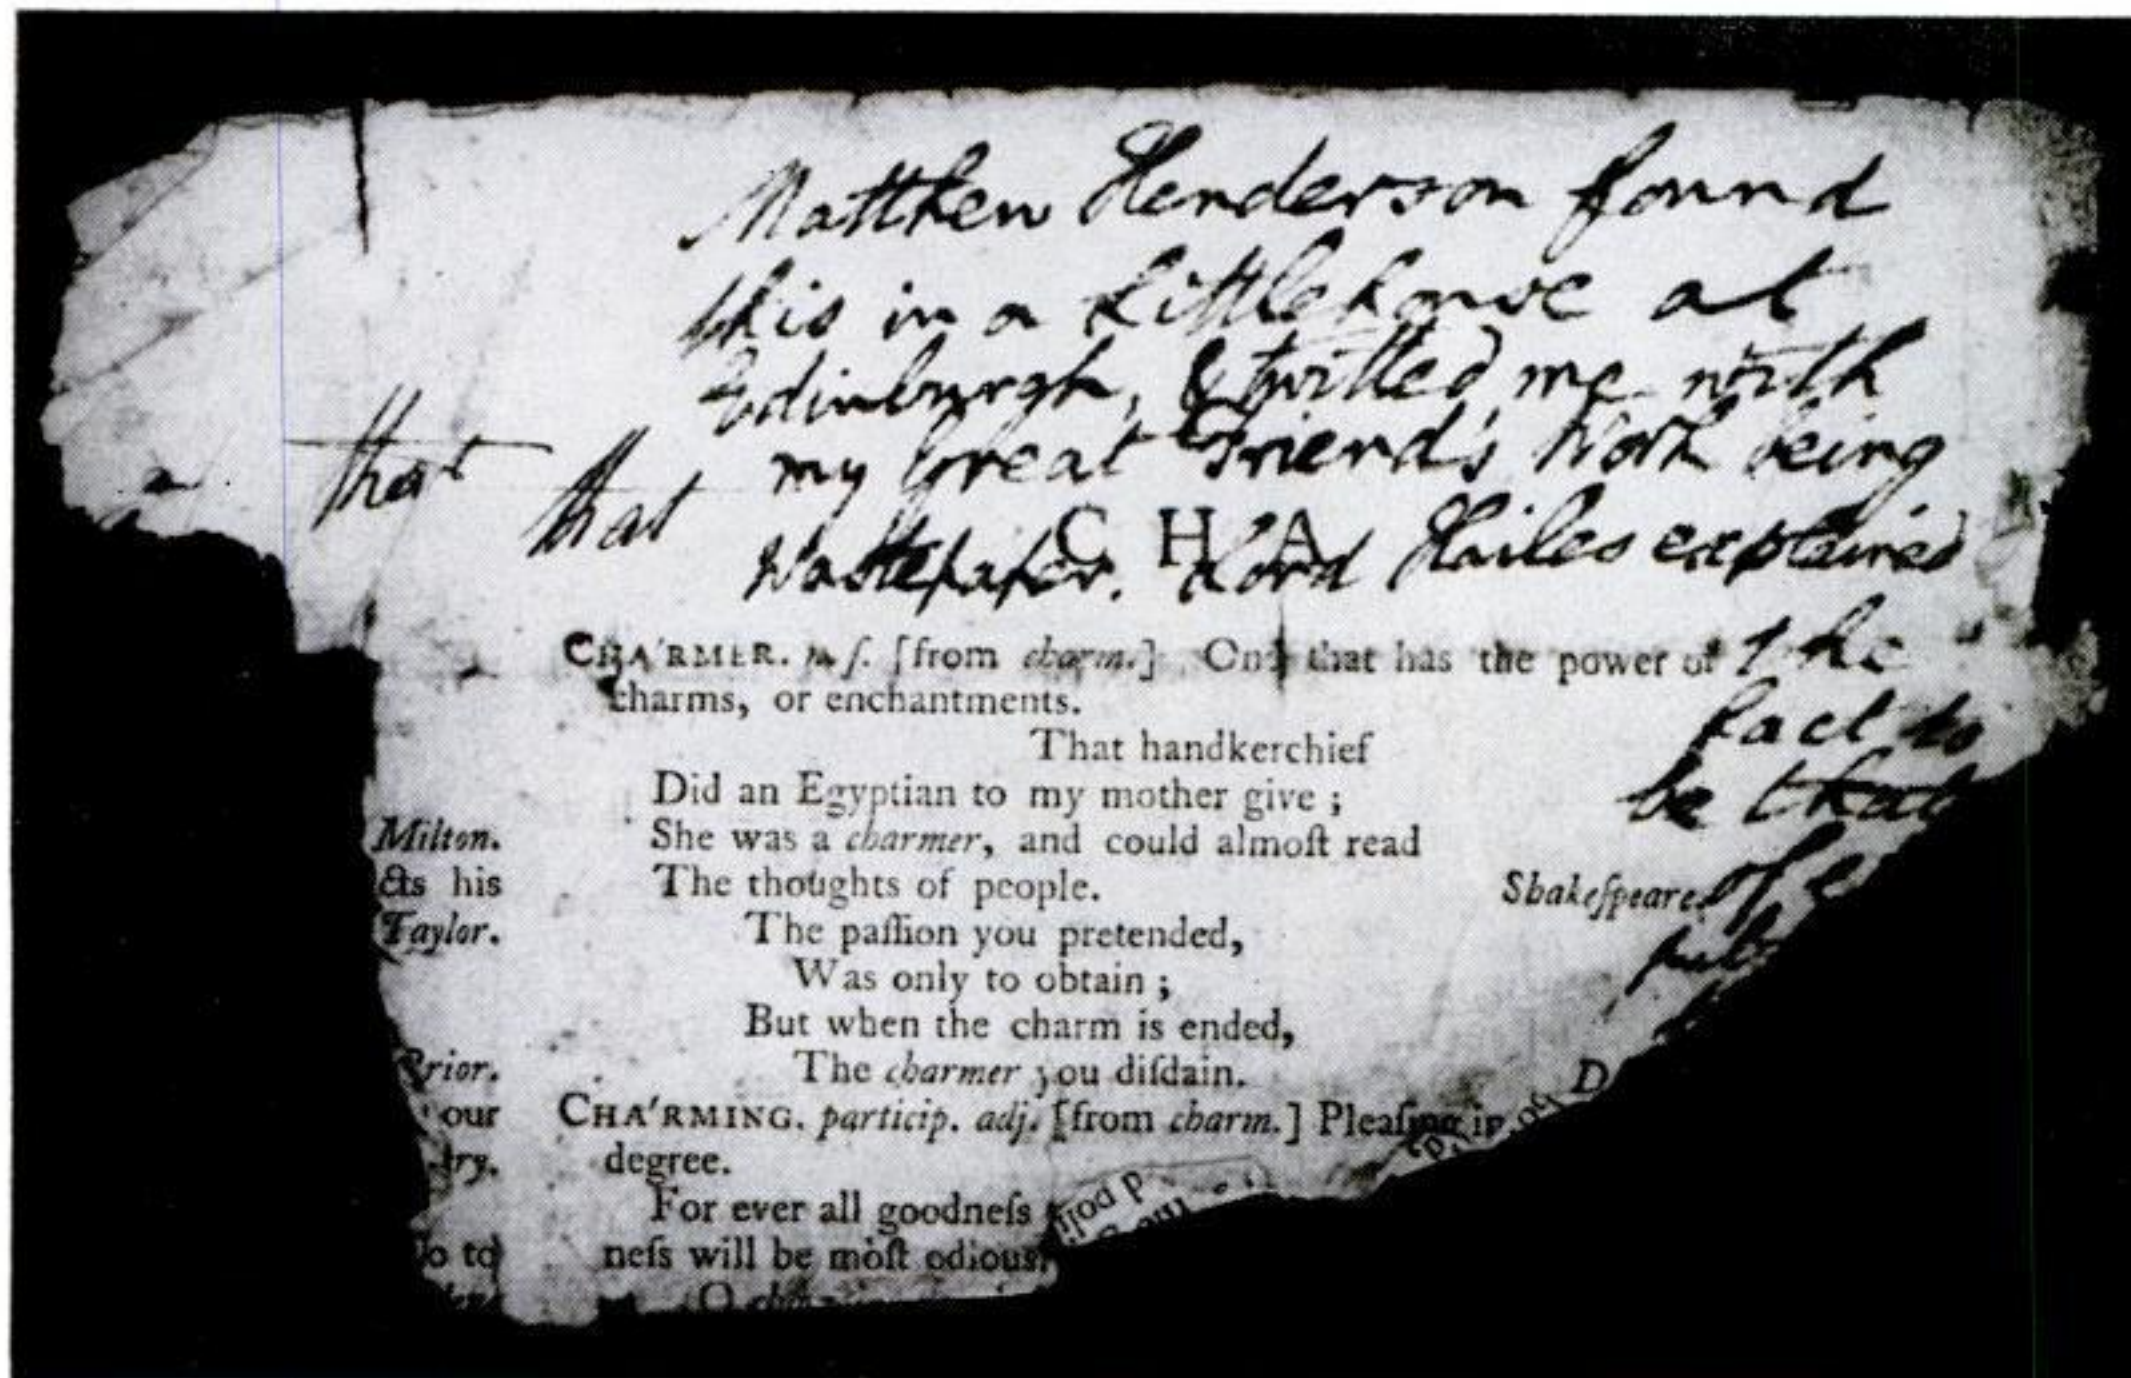 Matthew Henderson found
this in a Littlehouse at
Edinburgh, & twitted me with
my Great Friend's Work being
Wastepaper. Lord Hailes explained
the
fact to
be that
of
that that
C H A
CHA'RMER. n. ſ. [from charm.] One that has the power of
charms, or enchantments.
That handkerchief
Did an Egyptian to my mother give ;
She was a charmer, and could almoſt read
The thoughts of people. Shakeſpeare.
The paſſion you pretended,
Was only to obtain ;
But when the charm is ended,
The charmer you diſdain. D
CHA'RMING. particip. adj. [from charm.] Pleaſing in
degree.
For ever all goodneſs
neſs will be moſt odious.
O
Milton.
cts his
Taylor.
Prior.
our
try.
o to
d poli
the